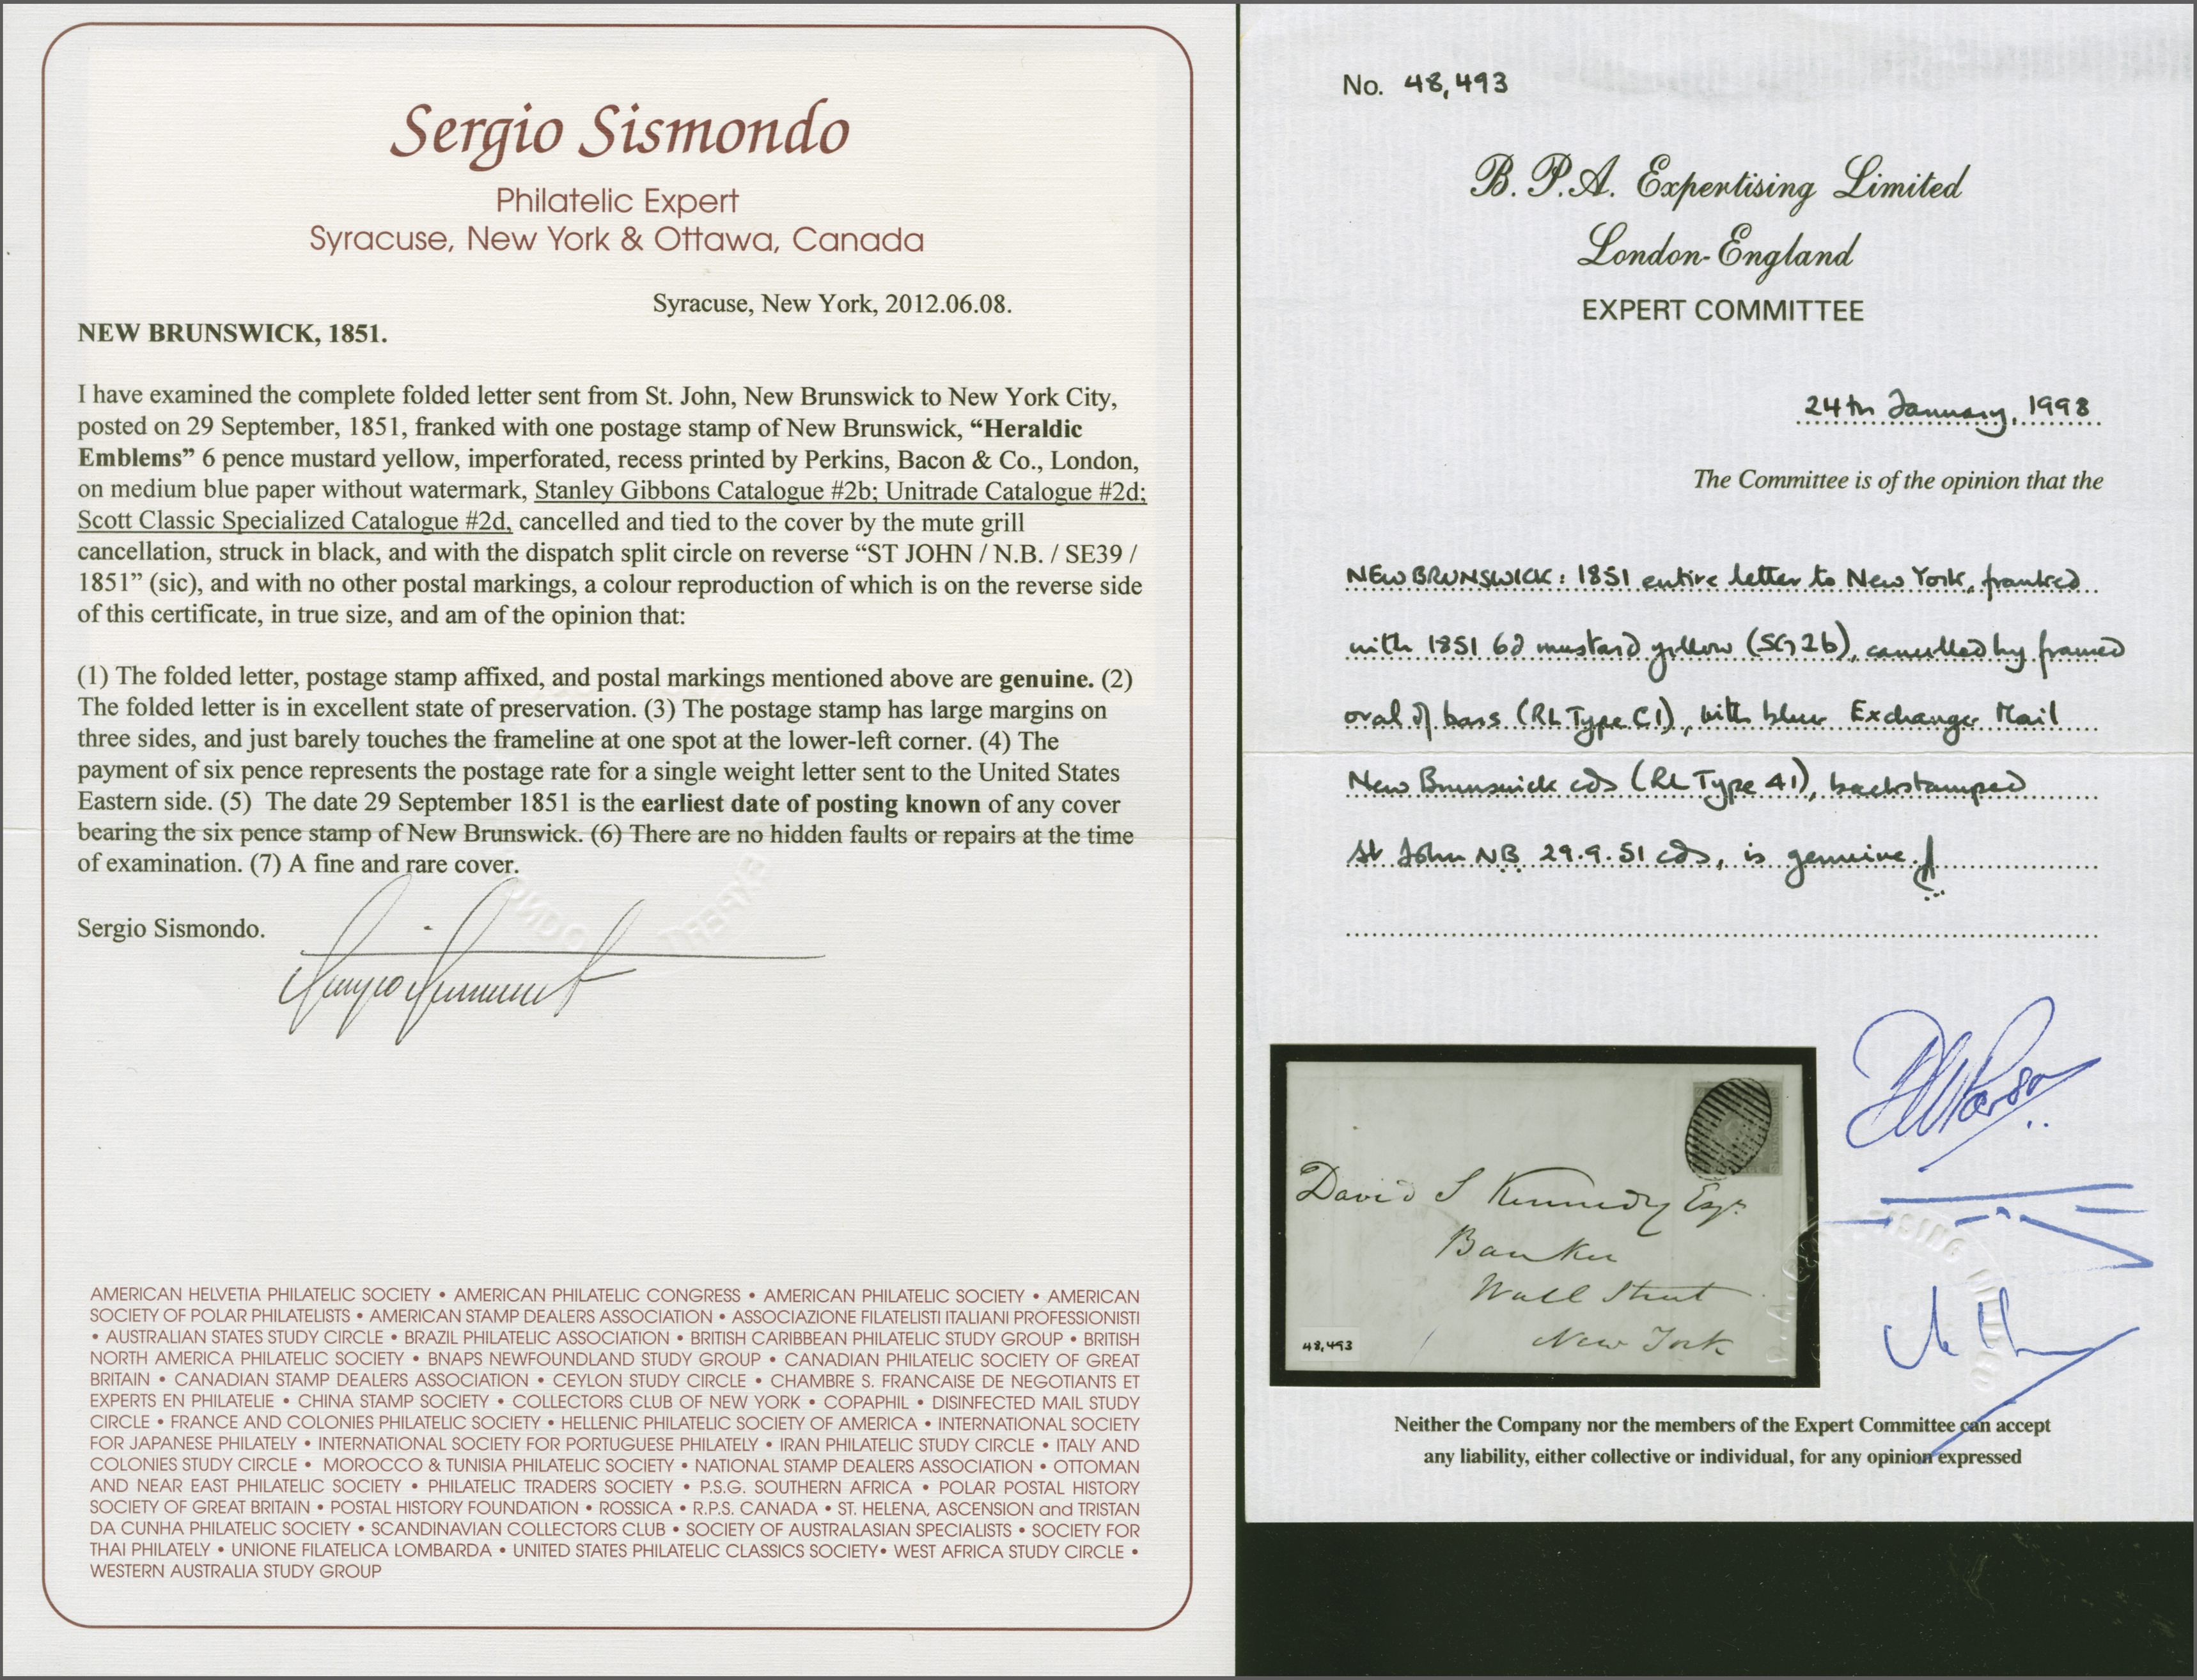 Sergio Sismondo
Philatelic Expert
Syracuse, New York & Ottawa, Canada
Syracuse, New York, 2012.06.08.
NEW BRUNSWICK, 1851.
I have examined the complete folded letter sent from St. John, New Brunswick to New York City,
posted on 29 September, 1851, franked with one postage stamp of New Brunswick, “Heraldic
Emblems” 6 pence mustard yellow, imperforated, recess printed by Perkins, Bacon & Co., London,
on medium blue paper without watermark, Stanley Gibbons Catalogue #2b; Unitrade Catalogue #2d;
Scott Classic Specialized Catalogue #2d, cancelled and tied to the cover by the mute grill
cancellation, struck in black, and with the dispatch split circle on reverse “ST JOHN / N.B. / SE39 /
1851” (sic), and with no other postal markings, a colour reproduction of which is on the reverse side
of this certificate, in true size, and am of the opinion that:
(1) The folded letter, postage stamp affixed, and postal markings mentioned above are genuine. (2)
The folded letter is in excellent state of preservation. (3) The postage stamp has large margins on
three sides, and just barely touches the frameline at one spot at the lower-left corner. (4) The
payment of six pence represents the postage rate for a single weight letter sent to the United States
Eastern side. (5) The date 29 September 1851 is the earliest date of posting known of any cover
bearing the six pence stamp of New Brunswick. (6) There are no hidden faults or repairs at the time
of examination. (7) A fine and rare cover.
Sergio Sismondo.
AMERICAN HELVETIA PHILATELIC SOCIETY • AMERICAN PHILATELIC CONGRESS • AMERICAN PHILATELIC SOCIETY • AMERICAN
SOCIETY OF POLAR PHILATELISTS • AMERICAN STAMP DEALERS ASSOCIATION • ASSOCIAZIONE FILATELISTI ITALIANI PROFESSIONISTI
• AUSTRALIAN STATES STUDY CIRCLE • BRAZIL PHILATELIC ASSOCIATION • BRITISH CARIBBEAN PHILATELIC STUDY GROUP • BRITISH
NORTH AMERICA PHILATELIC SOCIETY • BNAPS NEWFOUNDLAND STUDY GROUP • CANADIAN PHILATELIC SOCIETY OF GREAT
BRITAIN • CANADIAN STAMP DEALERS ASSOCIATION • CEYLON STUDY CIRCLE • CHAMBRE S. FRANCAISE DE NEGOTIANTS ET
EXPERTS EN PHILATELIE • CHINA STAMP SOCIETY • COLLECTORS CLUB OF NEW YORK • COPAPHIL • DISINFECTED MAIL STUDY
CIRCLE • FRANCE AND COLONIES PHILATELIC SOCIETY • HELLENIC PHILATELIC SOCIETY OF AMERICA • INTERNATIONAL SOCIETY
FOR JAPANESE PHILATELY • INTERNATIONAL SOCIETY FOR PORTUGUESE PHILATELY • IRAN PHILATELIC STUDY CIRCLE • ITALY AND
COLONIES STUDY CIRCLE • MOROCCO & TUNISIA PHILATELIC SOCIETY • NATIONAL STAMP DEALERS ASSOCIATION • OTTOMAN
AND NEAR EAST PHILATELIC SOCIETY • PHILATELIC TRADERS SOCIETY • P.S.G. SOUTHERN AFRICA • POLAR POSTAL HISTORY
SOCIETY OF GREAT BRITAIN • POSTAL HISTORY FOUNDATION • ROSSICA • R.P.S. CANADA • ST. HELENA, ASCENSION and TRISTAN
DA CUNHA PHILATELIC SOCIETY • SCANDINAVIAN COLLECTORS CLUB • SOCIETY OF AUSTRALASIAN SPECIALISTS • SOCIETY FOR
THAI PHILATELY • UNIONE FILATELICA LOMBARDA • UNITED STATES PHILATELIC CLASSICS SOCIETY• WEST AFRICA STUDY CIRCLE •
WESTERN AUSTRALIA STUDY GROUP
No. 48,493
B. P.A. Expertising Limited
London-England
EXPERT COMMITTEE
24th January, 1998
The Committee is of the opinion that the
NEW BRUNSWICK: 1851 entire letter to New York, franked
with 1851 6d mustard yellow (SG 2b), cancelled by framed
oval of bars (RL Type C1), with blue Exchange Mail
New Brunswick cds (RL Type 41), backstamped
St John NB 29.9.51 cds, is genuine.
David S Kennedy Esqr
Banker
Wall Street
New York
48,493
Neither the Company nor the members of the Expert Committee can accept
any liability, either collective or individual, for any opinion expressed